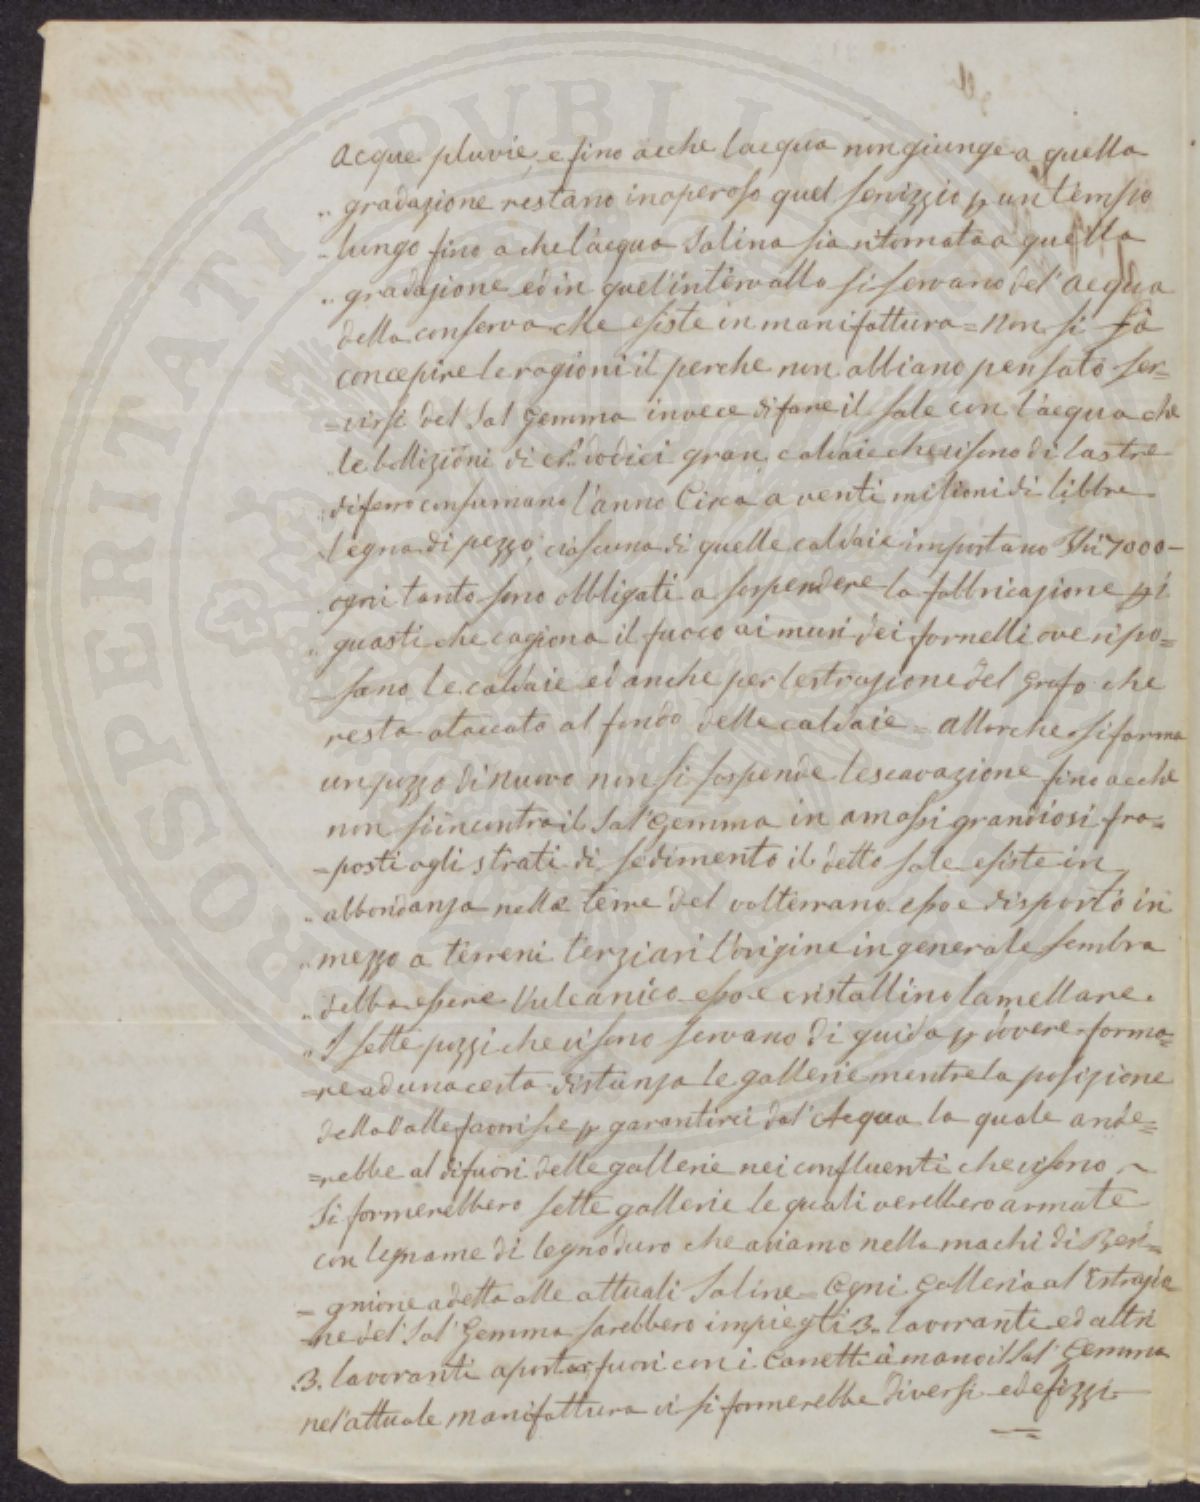 Acque pluvie, e fino acche l'acqua non giunge a quella
„ gradazione restano inoperoso quel servizzio p un tempo
- lungo fino a che l'acqua Salina sia ritornata a quella
„ gradazione ed in quel'intervallo si servano del' acqua
della conserva che esiste in manifattura = Non si sà
concepire le ragioni il perche non abbiano pensato ser=
=virsi del Sal Gemma invece di fare il Sale con l'acqua che
le bollizioni di N. dodici gran caldaie che vi sono di lastre
di ferro consumano l'anno Circa a venti milioni di libbre
legna di pezzo, ciascuna di quelle caldaie importano 7000-
ogni tanto sono obbligati a sospendere la fabbricazione p i
„ guasti che cagiona il fuoco ai muri dei fornelli ove ripo=
-sano le caldaie ed anche per l'estrazione del Graso che
resta ataccato al fondo delle caldaie = allorche si forma
un pozzo di nuovo non si sospende l'escavazione fino acche
non si incontra il Sal' Gemma in amassi grandiosi fra=
=posti agli strati di sedimento il detto sale esiste in
„ abbondanza nelle terre del volterrano esso e disposto in
„ mezzo a terreni terziari l'origine in generale sembra
„ debba essere Vulcanico esso e cristallino lamellare.
„ I sette pozzi che vi sono servano di guida p dovere forma=
=re ad una certa distanza le gallerie mentre la posizione
della Valle favorisce p garantirci dal' Acqua la quale ande=
=rebbe al difuori delle gallerie nei confluenti che vi sono ~
Si formerebbero sette gallerie le quali verebbero armate
con legname di legno duro che aviamo nella machi di Beri=
= gnione adetta alle attuali Saline = Ogni Galleria al' Estrazio
=ne del' Sal' Gemma sarebbero impiegti 3. lavoranti ed altri
.3. lavoranti a portar fuori con i Carretti à mano il Sal' Gemma
nel'attuale manifattura vi si formerebbe diversi edefizzi
PROSPERITATI PUBLICAE